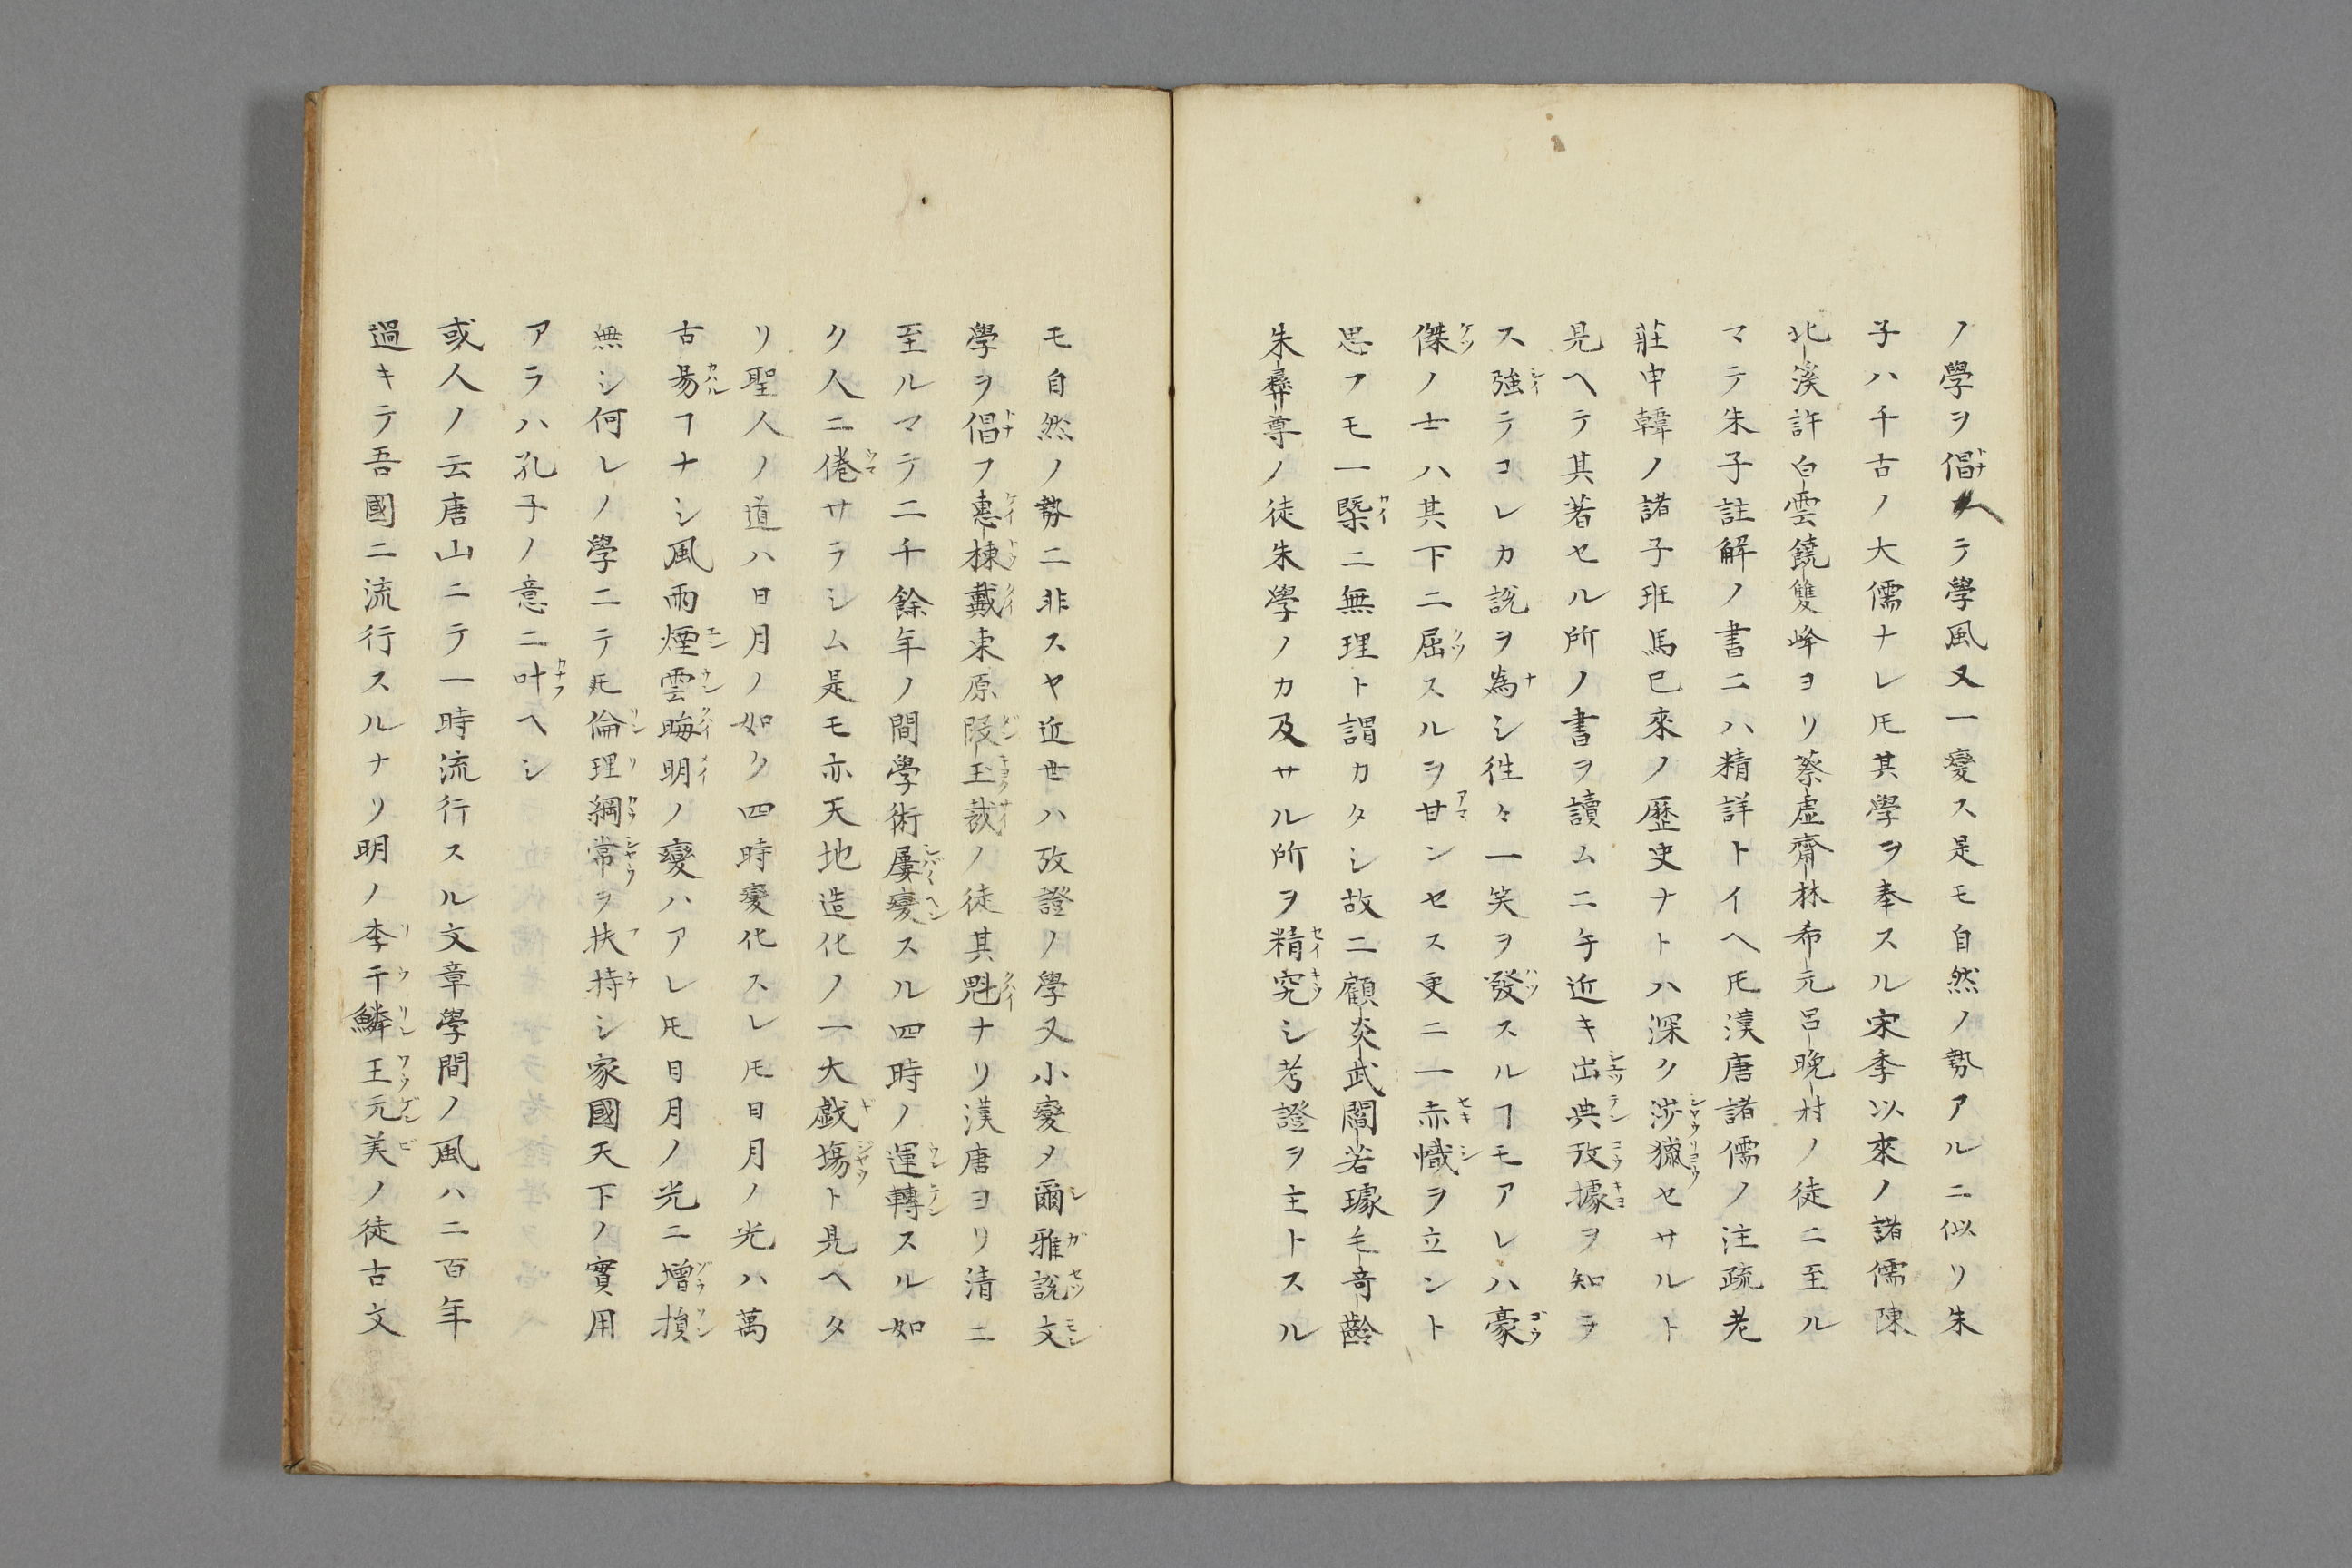 ノ學ヲ倡ヘテ學風又一變ス是モ自然ノ勢アルニ似リ朱
子ハ千古ノ大儒ナレ𪜈其學ヲ奉スル宋季以來ノ諸儒陳
北溪許白雲饒雙峰ヨリ蔡虚齋林希元呂晩村ノ徒ニ至ル
マテ朱子註解ノ書ニハ精詳トイヘ𪜈漢唐諸儒ノ注疏老
莊申韓ノ諸子班馬已來ノ歷史ナトハ深ク涉獵セサルト
見ヘテ其著セル所ノ書ヲ讀ムニ手近キ出典攷據ヲ知ラ
ス強テコレカ説ヲ為シ徃々一笑ヲ發スルヿモアレハ豪
傑ノ士ハ其下ニ屈スルヲ甘ンセス更ニ一赤幟ヲ立ント
思フモ一槩ニ無理ト謂カタシ故ニ顧炎武閻若璩毛竒齡
朱彝尊ノ徒朱學ノカ及サル所ヲ精究シ考證ヲ主トスル
モ自然ノ勢ニ非スヤ近世ハ攷證ノ學又小變メ爾雅説文
學ヲ倡フ惠棟戴東原段玉裁ノ徒其魁ナリ漢唐ヨリ清ニ
至ルマテ二千餘年ノ間學術屢變スル四時ノ運轉スル如
ク人ニ倦サラシム是モ亦天地造化ノ一大戯塲ト見ヘタ
リ聖人ノ道ハ日月ノ如ク四時變化スレ𪜈日月ノ光ハ萬
古昜ヿナシ風雨煙雲晦明ノ變ハアレ𪜈日月ノ光ニ増損
無シ何レノ學ニテ𪜈倫理綱常ヲ扶持シ家國天下ノ實用
アラハ孔子ノ意ニ叶ヘシ
或人ノ云唐山ニテ一時流行スル文章學問ノ風ハ二百年
過キテ吾國ニ流行スルナリ明ノ李于鱗王元美ノ徒古文